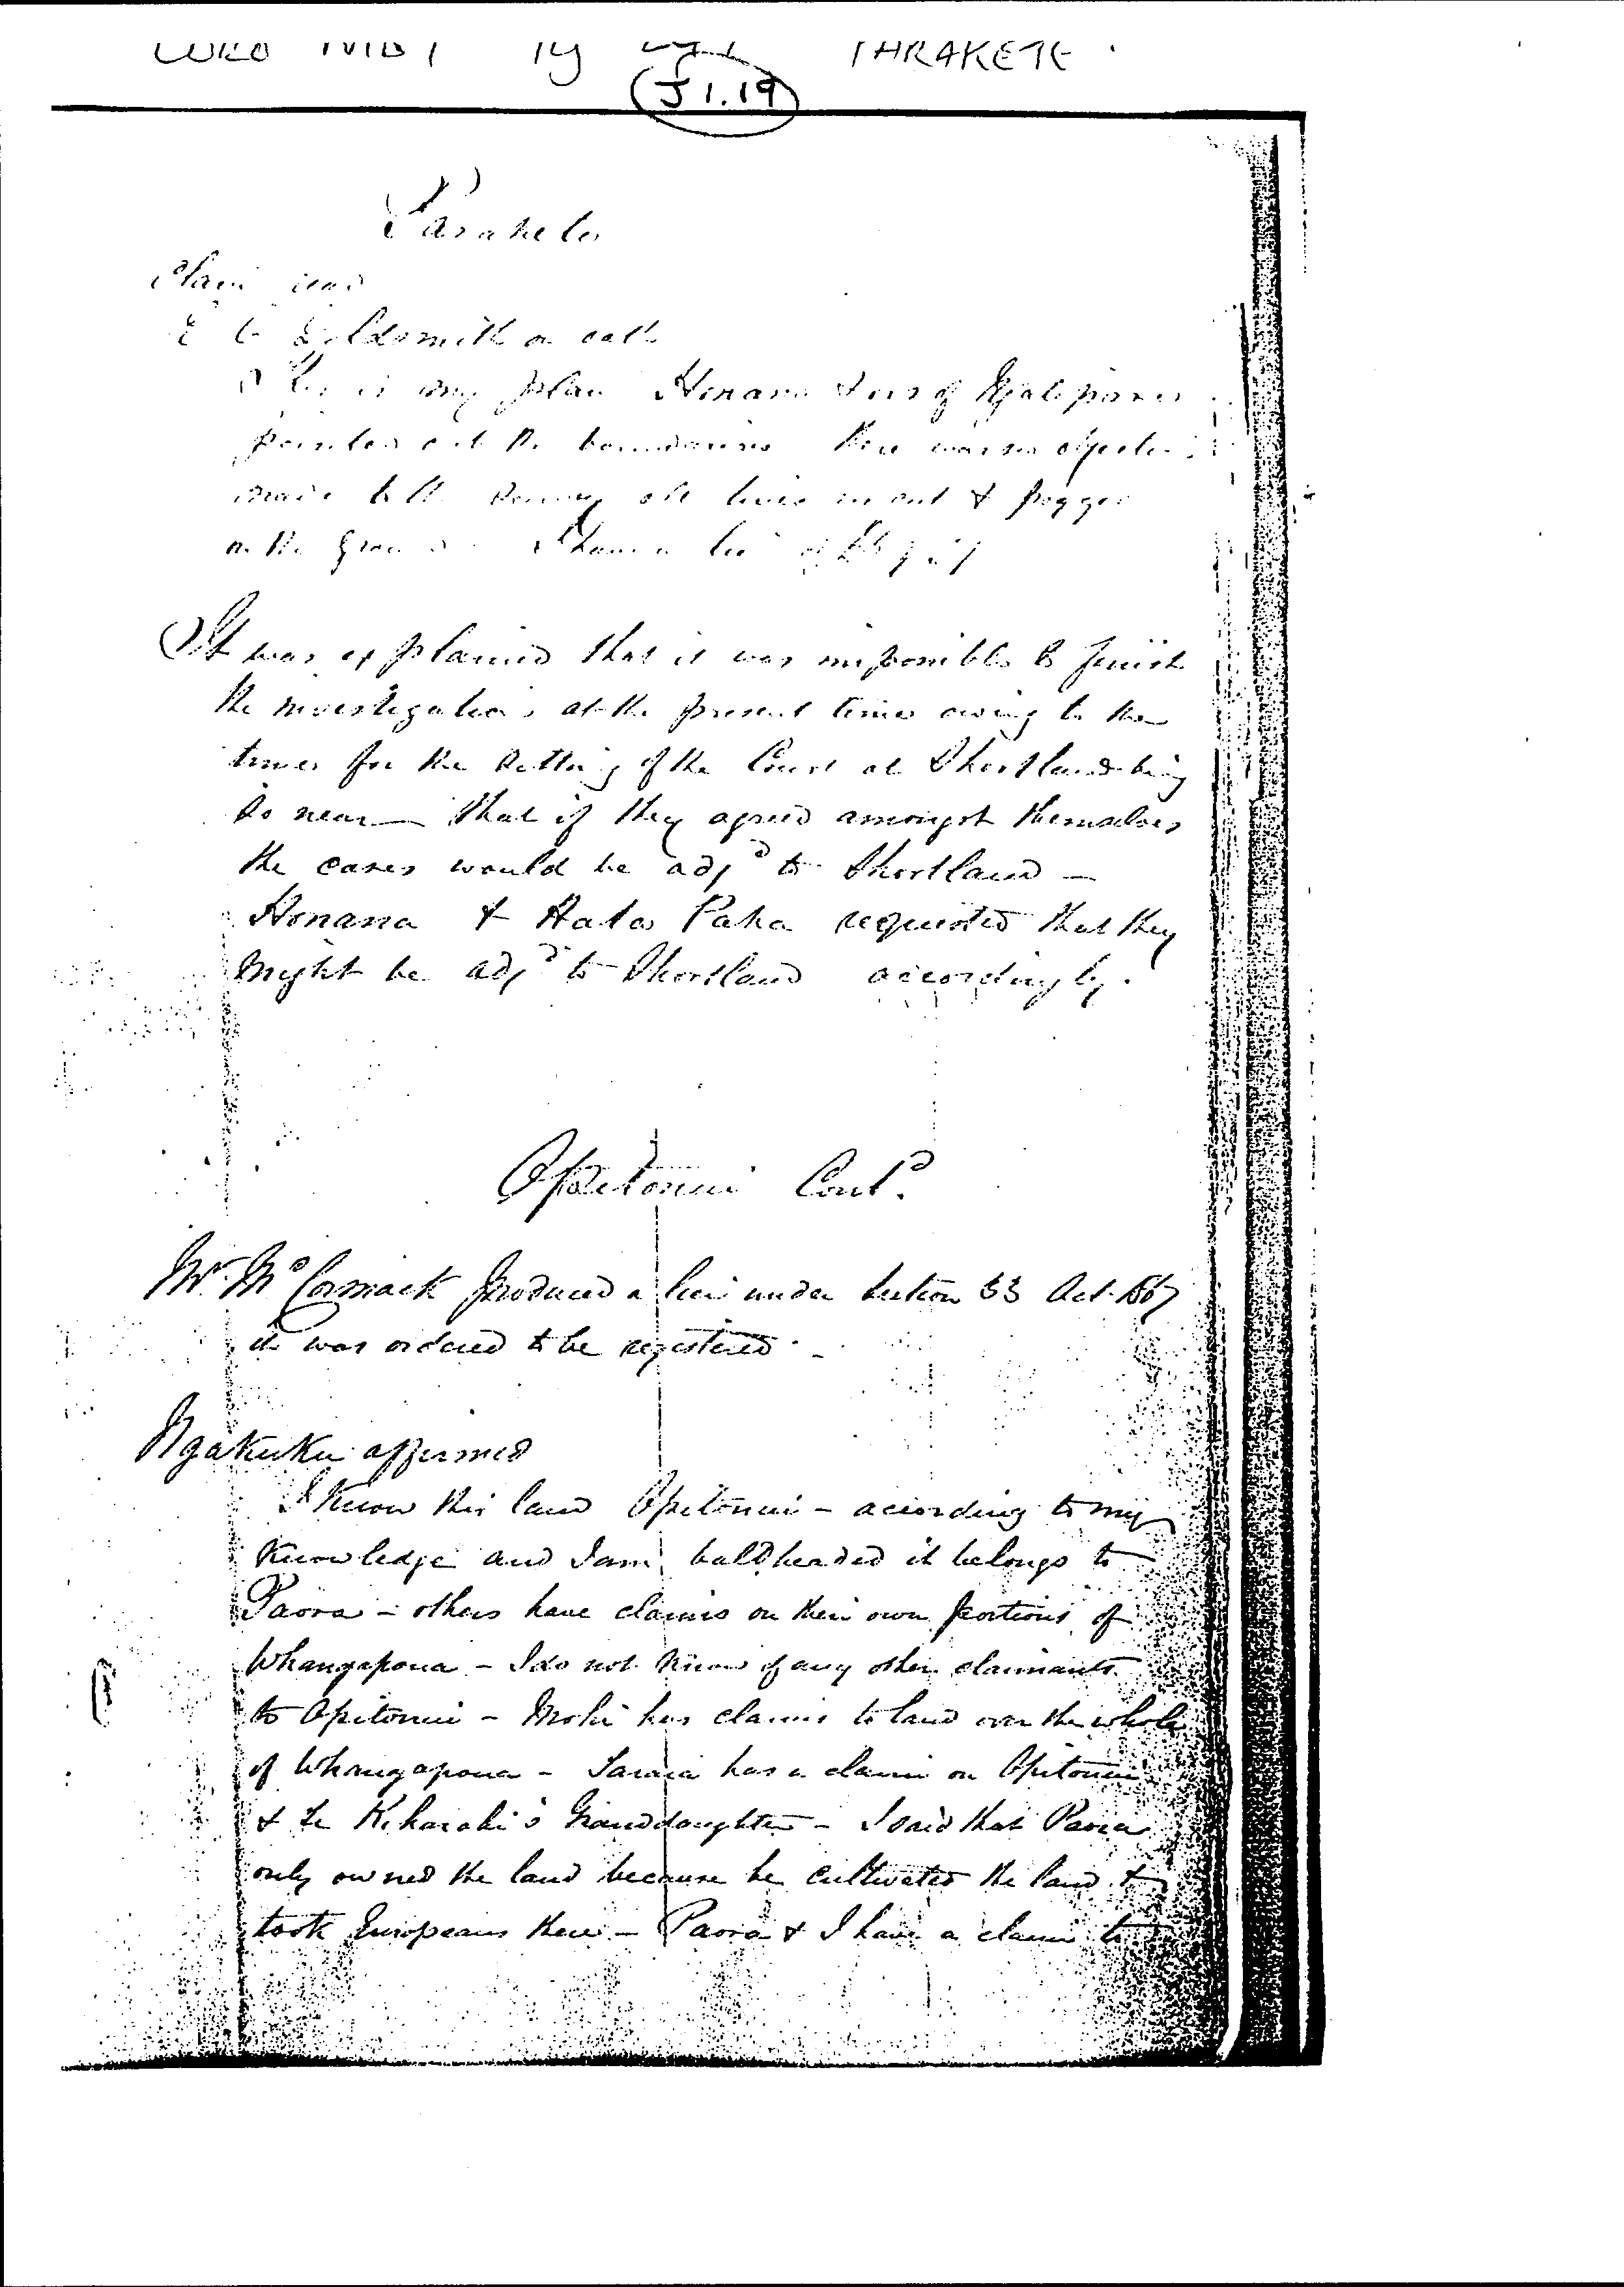 TARAKETE
J1.19
Tarakete
E C Goldsmith on oath
This is my plan Honana & ors of Ngatiporou
pointed out the boundaries there was no objection
made to the survey all lines are cut & pegged
on the ground
It was explained that it was impossible to finish
the investigations at the present time owing to the
times for the sitting of the Court at Shortland being
so near — that if they agreed amongst themselves
the cases would be adjd to Shortland —
Honana & Hata Paka requested that they
might be adjd to Shortland accordingly.
Opitonui Contd.
Mr. McCormack produced a lien under section 33 Act 1867
it was ordered to be registered.
Ngakuku affirmed
I know this land Opitonui - according to my
knowledge and I am baldheaded it belongs to
Paora - others have claims on their own portions of
Whangapoua - I do not know of any other claimants
to Opitonui - Mohi has claims to land over the whole
of Whangapoua - Taraia has a claim on Opitonui
& Te Keharahi's Granddaughter - I said that Paora
only owned the land because he cultivated the land &
took Europeans there - Paora & I have a claim to